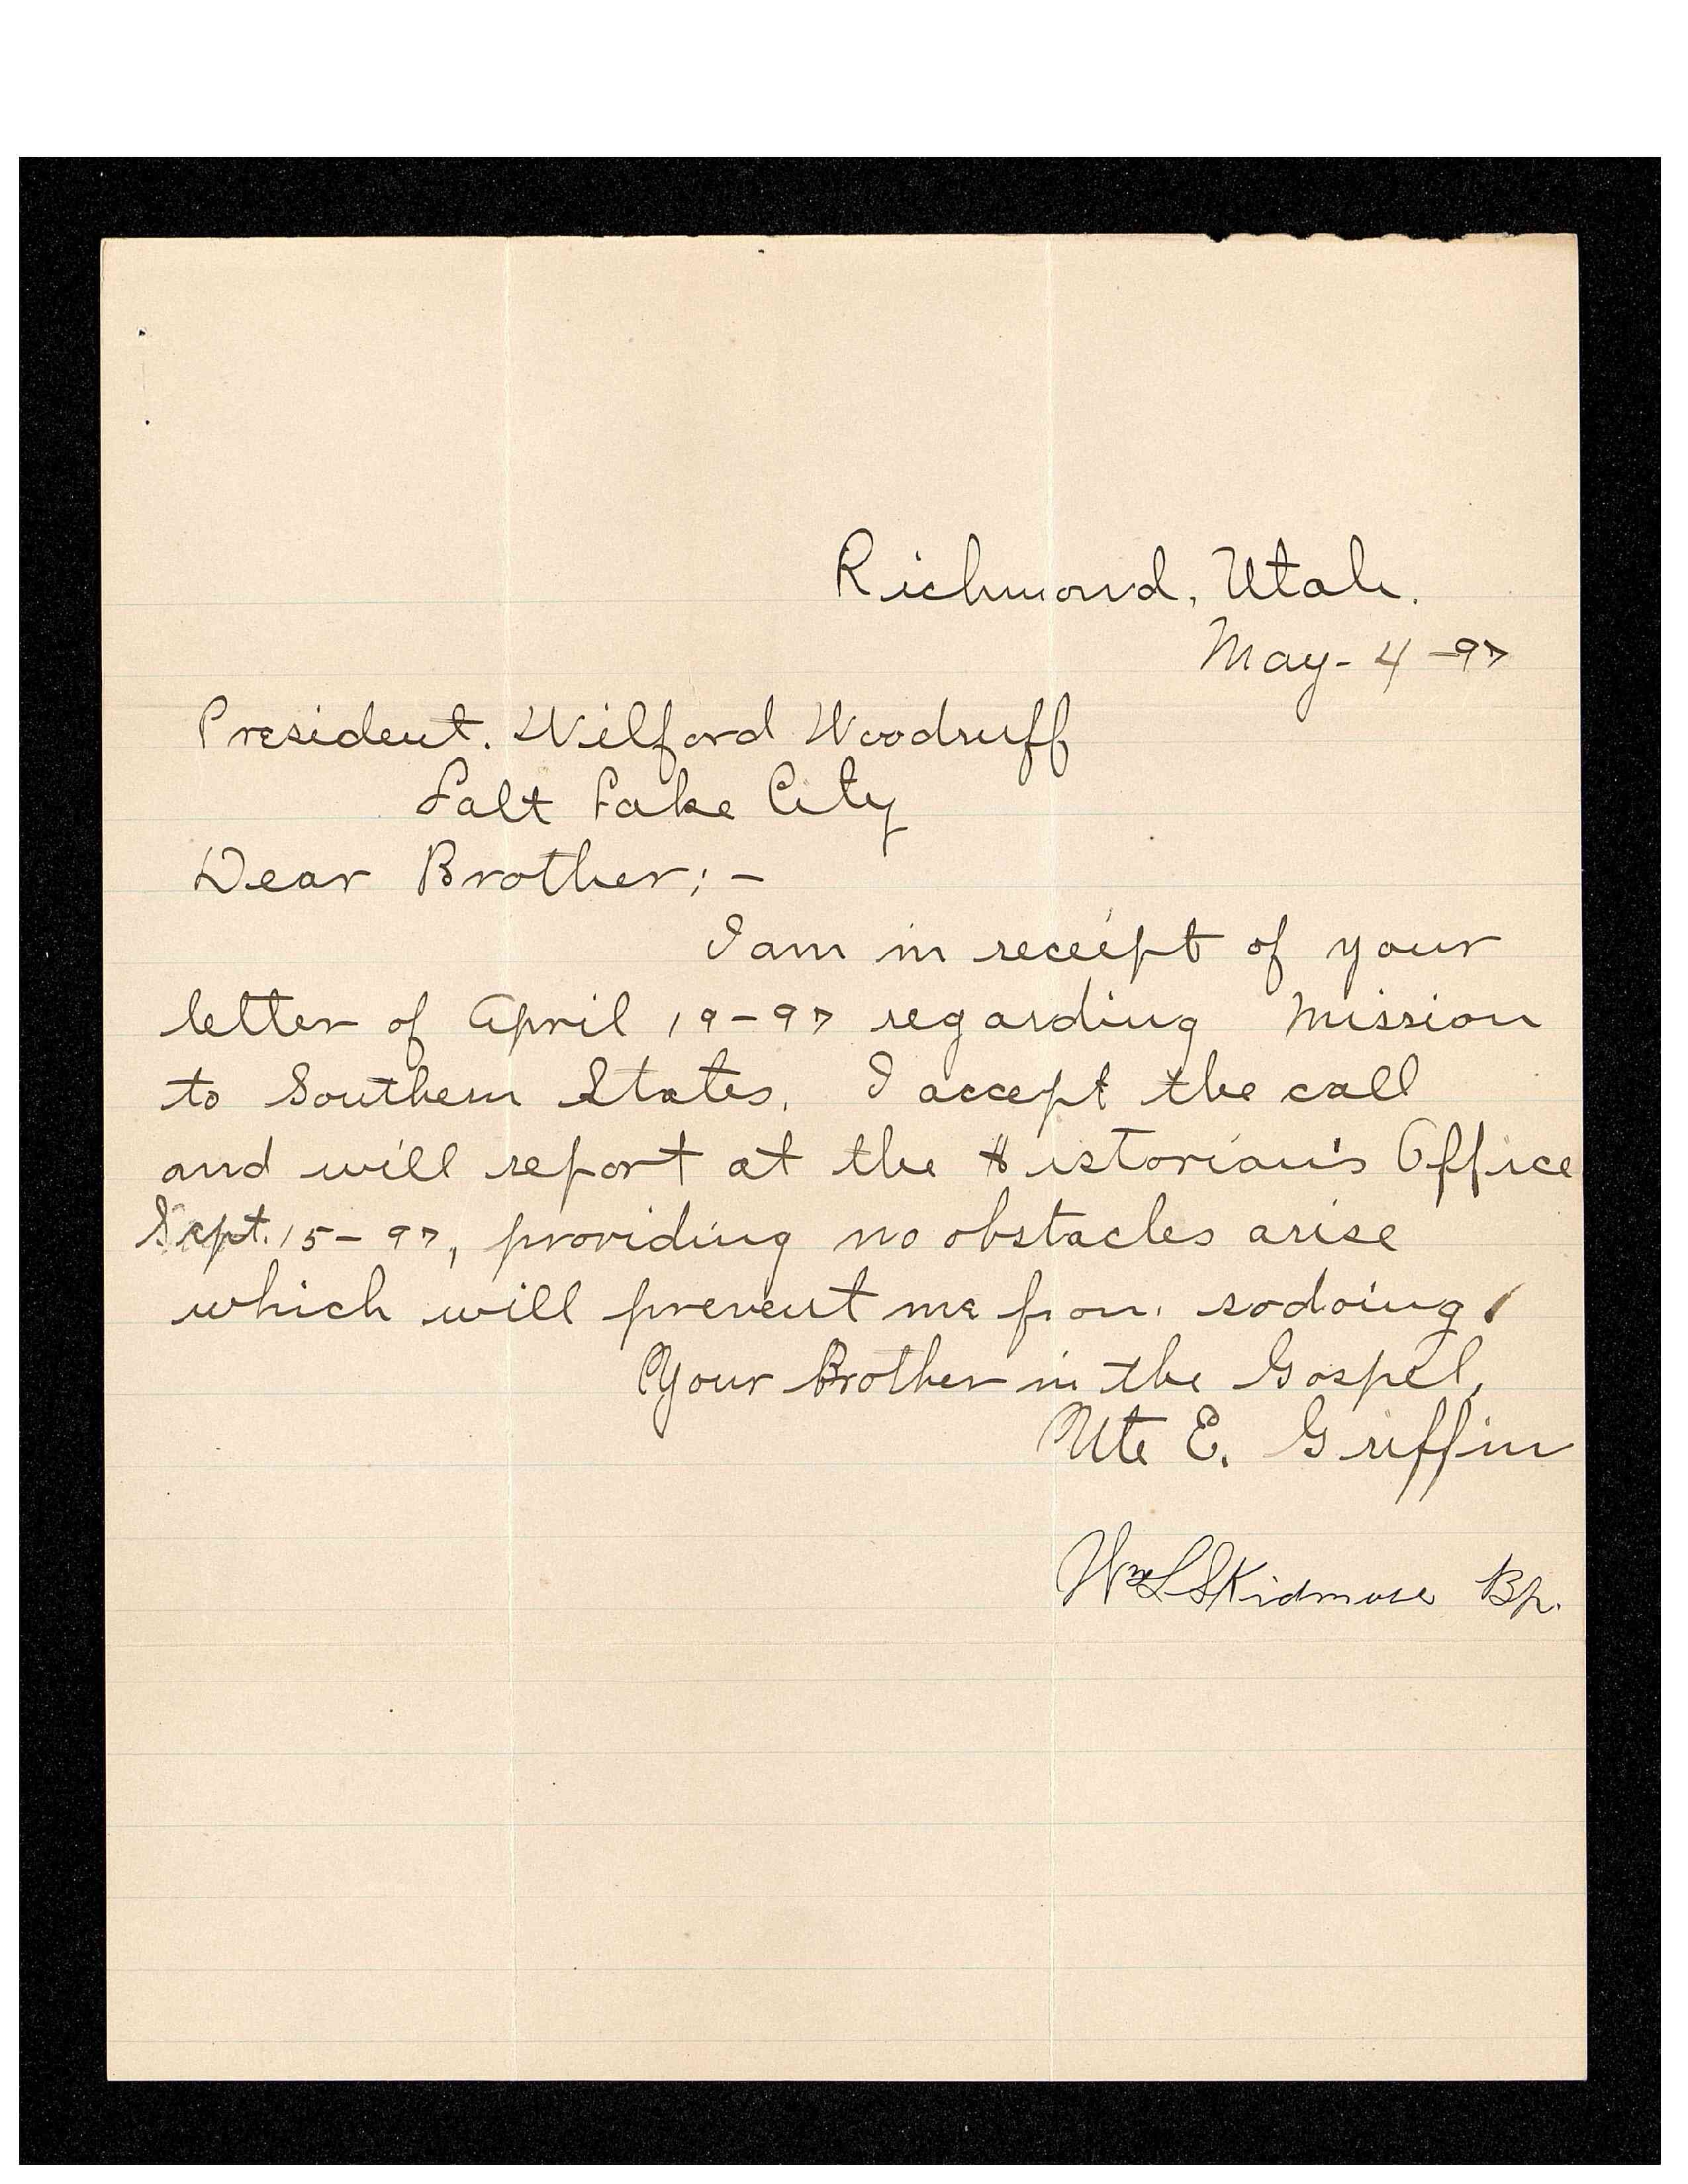 Richmond, Utah.
May - 4 - 97
President. Wilford Woodruff
Salt Lake City
Dear Brother; -
I am in receipt of your
letter of April 19 - 97 regarding Mission
to Southern States. I accept the call
and will report at the Historian's Office
Sept. 15 - 97, providing no obstacles arise
which will prevent me from sodoing.
Your Brother in the Gospel,
Ute E. Griffin
Wm L Skidmore Bp.